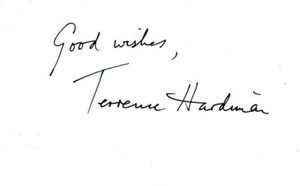 Good wishes,
Terrence Hardiman